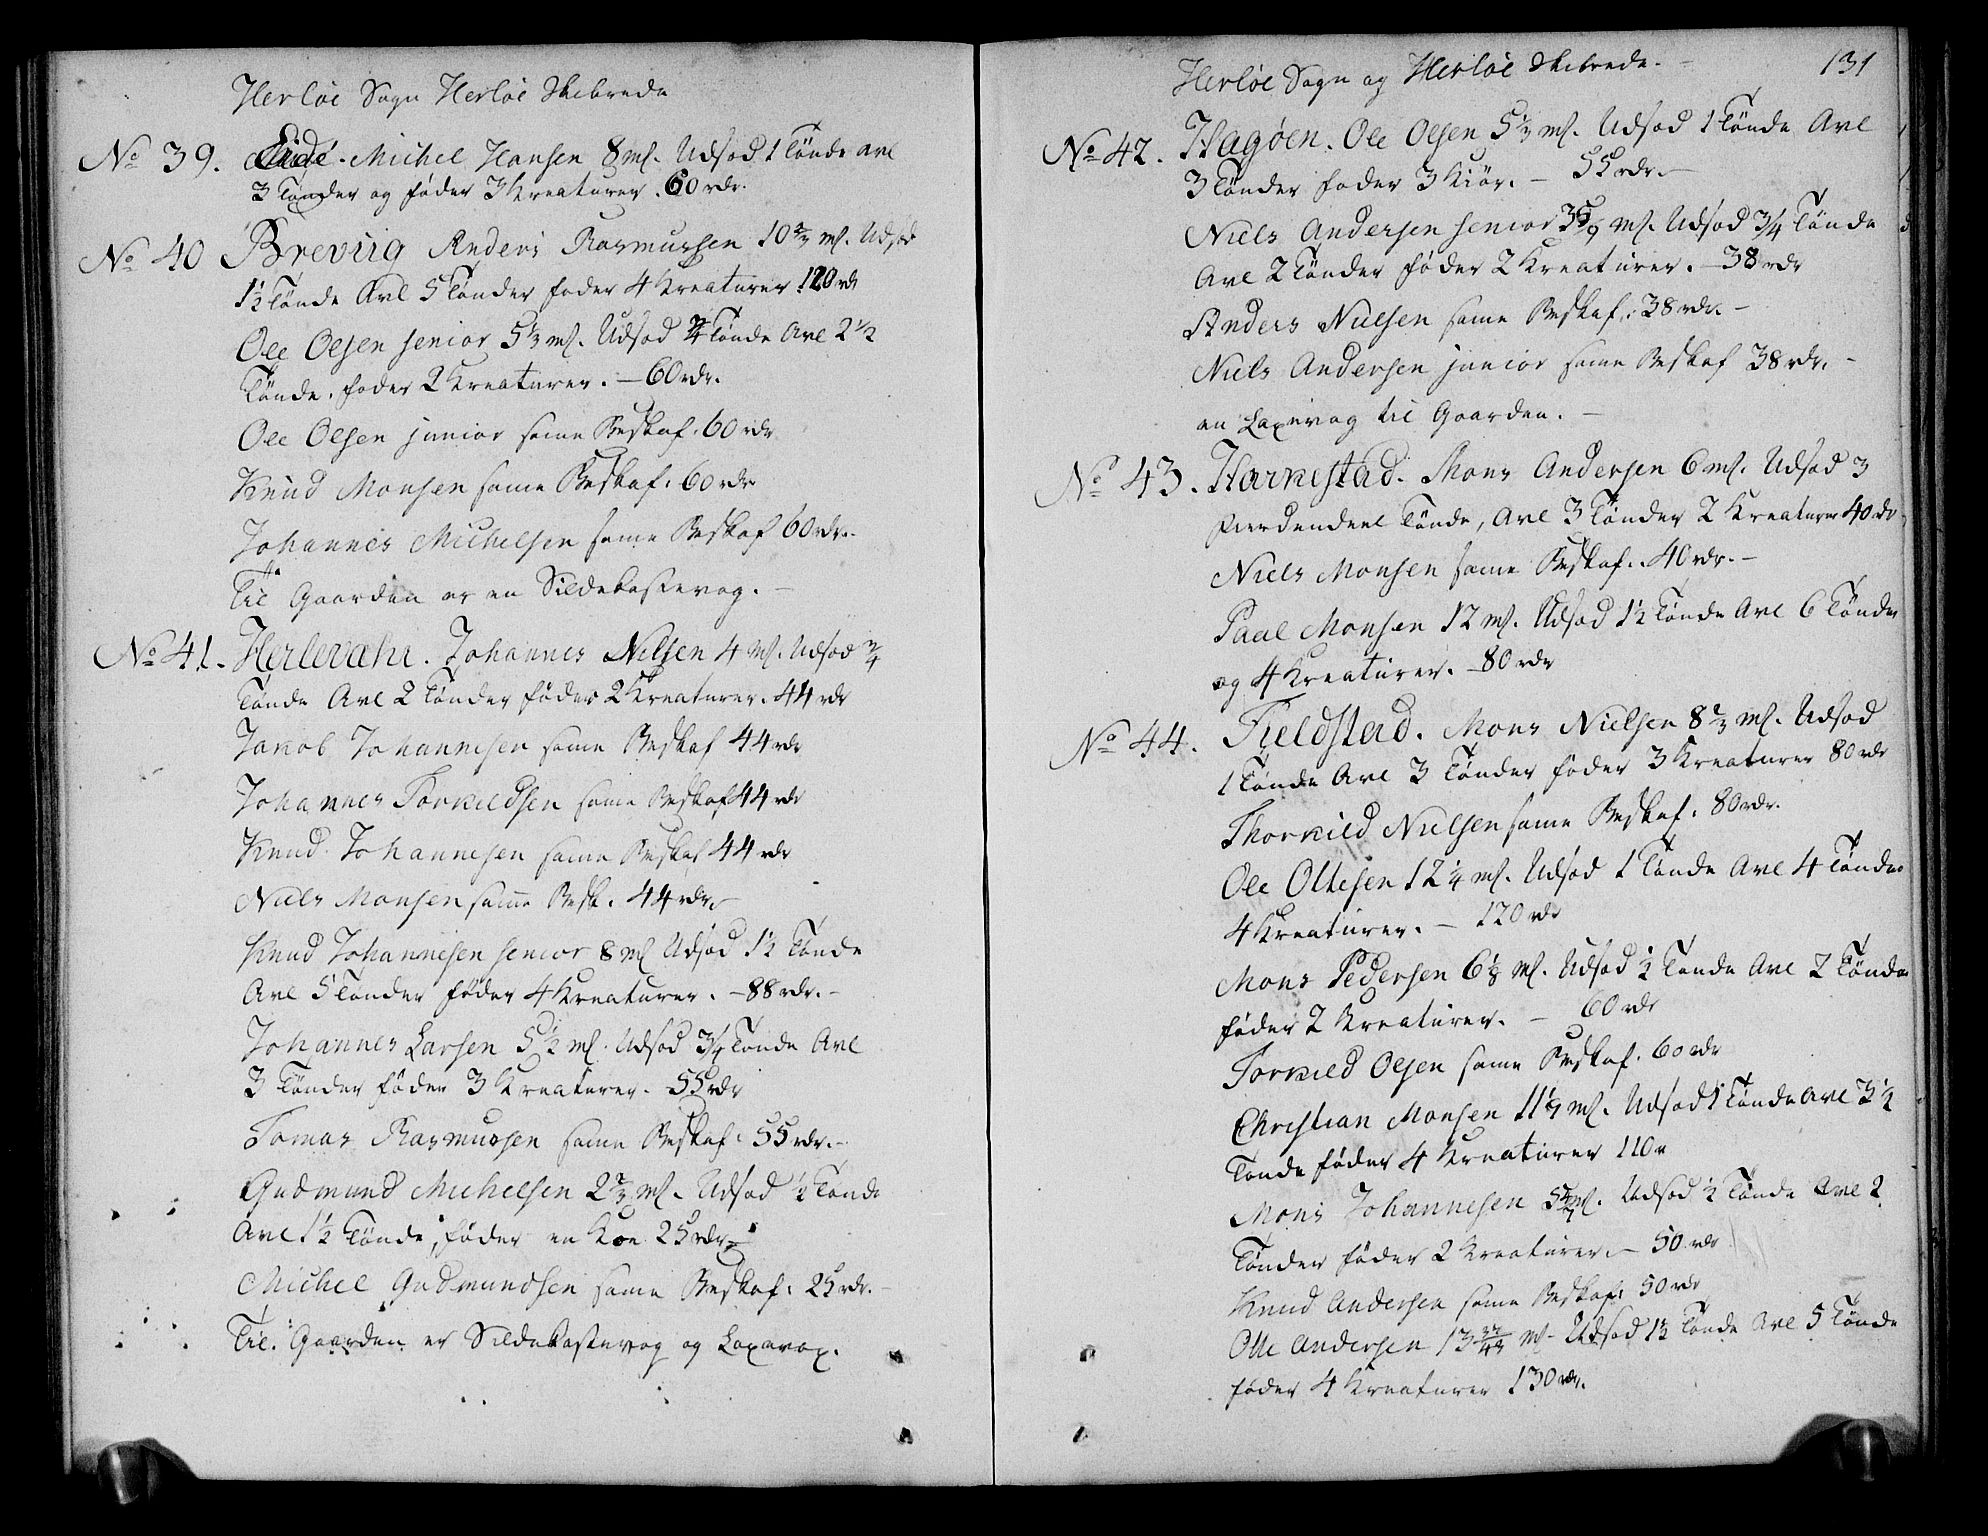 Herløe Sogn Herløe Skibrede
No 39. Eide. Michel Hansen 8 ml. Udsæd 1 Tönde avl
3 Tönder og föder 3 Kreaturer. 60 rdr.
No 40 Breviig Anders Rasmussen 10 2/3 ml. Udsæd
1 1/2 Tönde Avl 5 Tönder föder 4 Kreaturer 120 rdr
Ole Olsen senior 5 1/3 ml. Udsæd 3/4 Tönde Avl 2 1/2
Tönde. föder 2 Kreaturer. — 60 rdr.
Ole Olsen junior same Beskaf. 60 rdr
Knud Monsen same Beskaf. 60 rdr
Johannes Michelsen same Beskaf 60 rdr.
Til Gaarden er en Sildekastevog. —
No 41. Herlevæhr. Johannes Nilsen 4 ml. Udsæd 3/4
Tönde Avl 2 Tönder föder 2 Kreaturer. 44 rdr
Jakob Johannesen same Beskaf 44 rdr
Johannes Torkildsen same Beskaf 44 rdr
Knud Johannesen same Beskaf 44 rdr
Niels Monsen same Besk. 44 rdr. —
Knud Johannesen senior 8 ml Udsæd 1 1/2 Tönde
Avl 5 Tönder föder 4 Kreaturer. — 88 rdr. —
Johannes Larsen 5 1/2 ml. Udsæd 3/4 Tönde Avl
3 Tönder föder 3 Kreaturer. 55 rdr
Tomas Rasmussen same Beskaf: 55 rdr. —
Gudmund Michelsen 2 2/3 ml. Udsæd 1/2 Tönde
Avl 1 1/2 Tönde, föder en Koe 25 rdr.
Michel Gudmundsen same Beskaf: 25 rdr. —
Til Gaarden er Sildekastevog og Laxevog.
Herløe Sogn og Herløe Skibrede. — 131
No 42. Hagøen. Ole Olsen 5 1/3 ml. Udsæd 1 Tönde Avl
3 Tönder föder 3 Kiör. — 55 rdr. —
Niels Andersen senior 3 5/9 ml. Udsæd 3/4 Tönde
Avl 2 Tönder föder 2 Kreaturer. — 38 rdr
Anders Nielsen same Beskaf: 38 rdr. —
Niels Andersen junior same Beskaf 38 rdr. —
en Laxevog til Gaarden. —
No 43. Harkestad. Mons Andersen 6 ml. Udsæd 3
Fierdendeel Tönde, Avl 3 Tönder 2 Kreaturer 40 rdr
Niels Monsen same Beskaf. 40 rdr. —
Paal Monsen 12 ml. Udsæd 1 1/2 Tönde Avl 6 Tönder
og 4 Kreaturer. — 80 rdr
No 44. Fieldstad. Mons Nielsen 8 2/3 ml. Udsæd
1 Tönde Avl 3 Tönder föder 3 Kreaturer 80 rdr
Thorkild Nielsen same Beskaf. 80 rdr.
Ole Ottesen 12 1/4 ml. Udsæd 1 Tönde Avl 4 Tönder
4 Kreaturer. — 120 rdr
Mons Pedersen 6 1/8 ml. Udsæd 1/2 Tönde Avl 2 Tönder
föder 2 Kreaturer. — 60 rdr
Torkild Olsen same Beskaf. 60 rdr
Christian Monsen ml. Udsæd 1 Tönde Avl 3 1/2
Tönde föder 4 Kreaturer 110 r
Mons Johannesen ml. Udsæd 1/2 Tönde Avl 2
Tönder föder 2 Kreaturer. — 50 rdr
Knud Andersen same Beskaf: 50 rdr
Otte Andersen ml. Udsæd 1 1/2 Tönde Avl 5 Tönde
föder 4 Kreaturer 130 rdr.